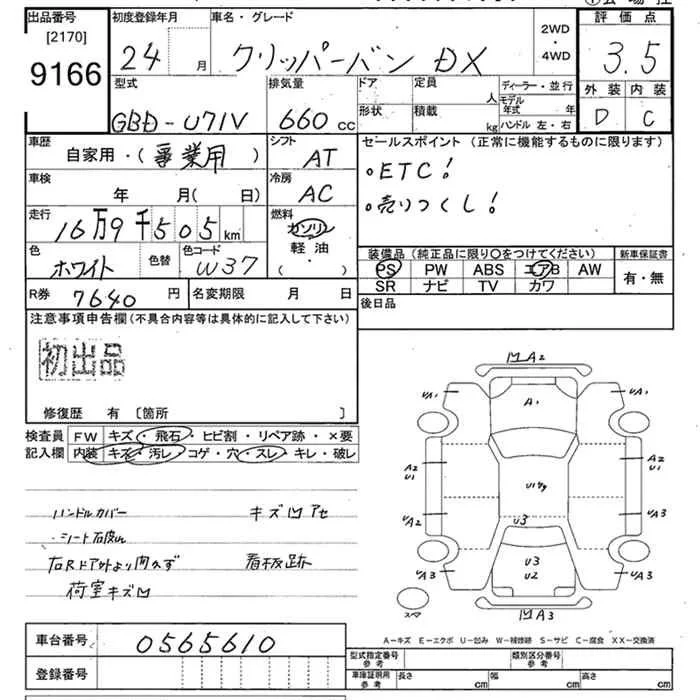 出品番号 初度登録年月 車名・グレード 2WD・4WD 評価点
[2170]
9166 24 月 クリッパーバン DX 3.5
型式 排気量 ドア 定員 人 ディーラー・並行 外装 内装
GBD-U71V 660 cc 形状 積載 kg モデル年式 年 ハンドル 左・右 D C
車歴 自家用・(事業用) シフト AT セールスポイント (正常に機能するものに限ります)
車検 年 月(日) 冷房 AC ・ETC!
走行 16万9千505km 燃料 ガソリン ・売りつくし!
軽油
( ・ )
色 ホワイト 色替 色コード W37 装備品(純正品に限り○をつけてください) 新車保証書
PS PW ABS エアB AW 有・無
SR ナビ TV カワ
R券 7640 円 名変期限 月 日 後日品
注意事項申告欄(不具合内容等は具体的に記入して下さい)
初出品
修復歴 有 〔箇所 〕
検査員 FW キズ・飛石・ヒビ割・リペア跡・×要
記入欄 内装 キズ・汚レ・コゲ・穴・スレ・キレ・破レ
ハンドルカバー キズ凹アセ
・シート破れ
右Rドア外より開かず 看板跡
荷室キズ凹
凹A2
UA1 A1 UA1
A2 U1 A2 U1
U1
UA2 U3 UA3
U3
U2
UA3 UA3
スペア
凹A3
A-キズ E-エクボ U-凹み W-補修跡 S-サビ C-腐食 XX-交換済
車台番号 0565610
型式指定番号 参考 類別区分番号 参考
登録番号 車庫証明用 参考 長さ cm 幅 cm 高さ cm